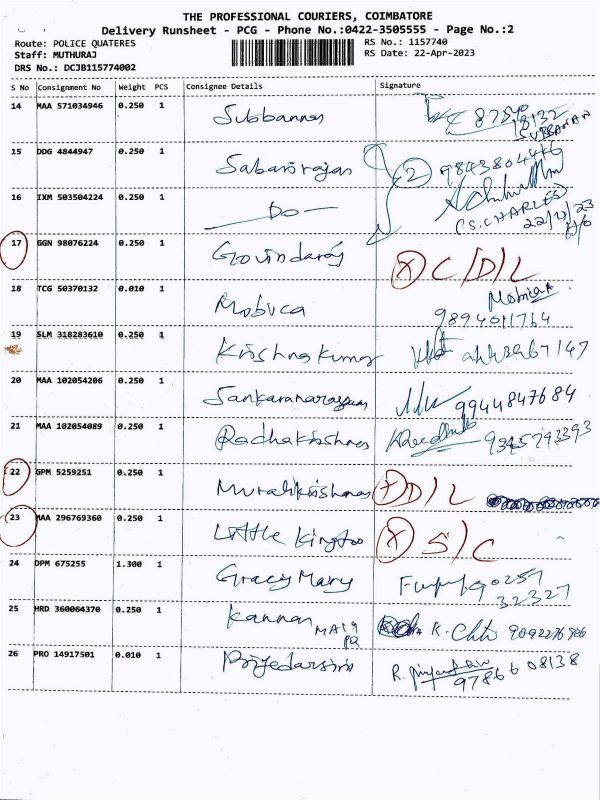 THE PROFESSIONAL COURIERS, COIMBATORE
Delivery Runsheet - PCG - Phone No.:0422-3505555 - Page No.:2
Route: POLICE QUATERES RS No.: 1157740
Staff: MUTHURAJ RS Date: 22-Apr-2023
DRS No.: DCJB115774002
S No Consignment No Weight PCS Consignee Details Signature
14 MAA 571034946 0.250 1 Subbannan 8754018132
SUBBANAN
15 DDG 4844947 0.250 1 Sabarirajan 2 9843804446
16 IXM 503504224 0.250 1 —Do—
(S.CHARLES)
22/4/23
17 GGN 98076224 0.250 1 Govindaraj X C/D/L
18 TCG 50370132 0.010 1 Mobica Mobica
9894011764
19 SLM 318283610 0.250 1 Krishna Kumar
20 MAA 102054206 0.250 1 Sankaranarayanan 9944847684
21 MAA 102054089 0.250 1 Radhakrishnan 9345793393
22 GPM 5259251 0.250 1 Muralikrishnan X D/L
23 MAA 296769360 0.250 1 Little Kingdoo X S/C
24 DPM 675255 1.300 1 Gracy Mary 90257
32327
25 HRD 360064370 0.250 1 Kannan K. Chts 9092276966
26 PRO 14917501 0.010 1 Priyedarsini R. 97866 08138